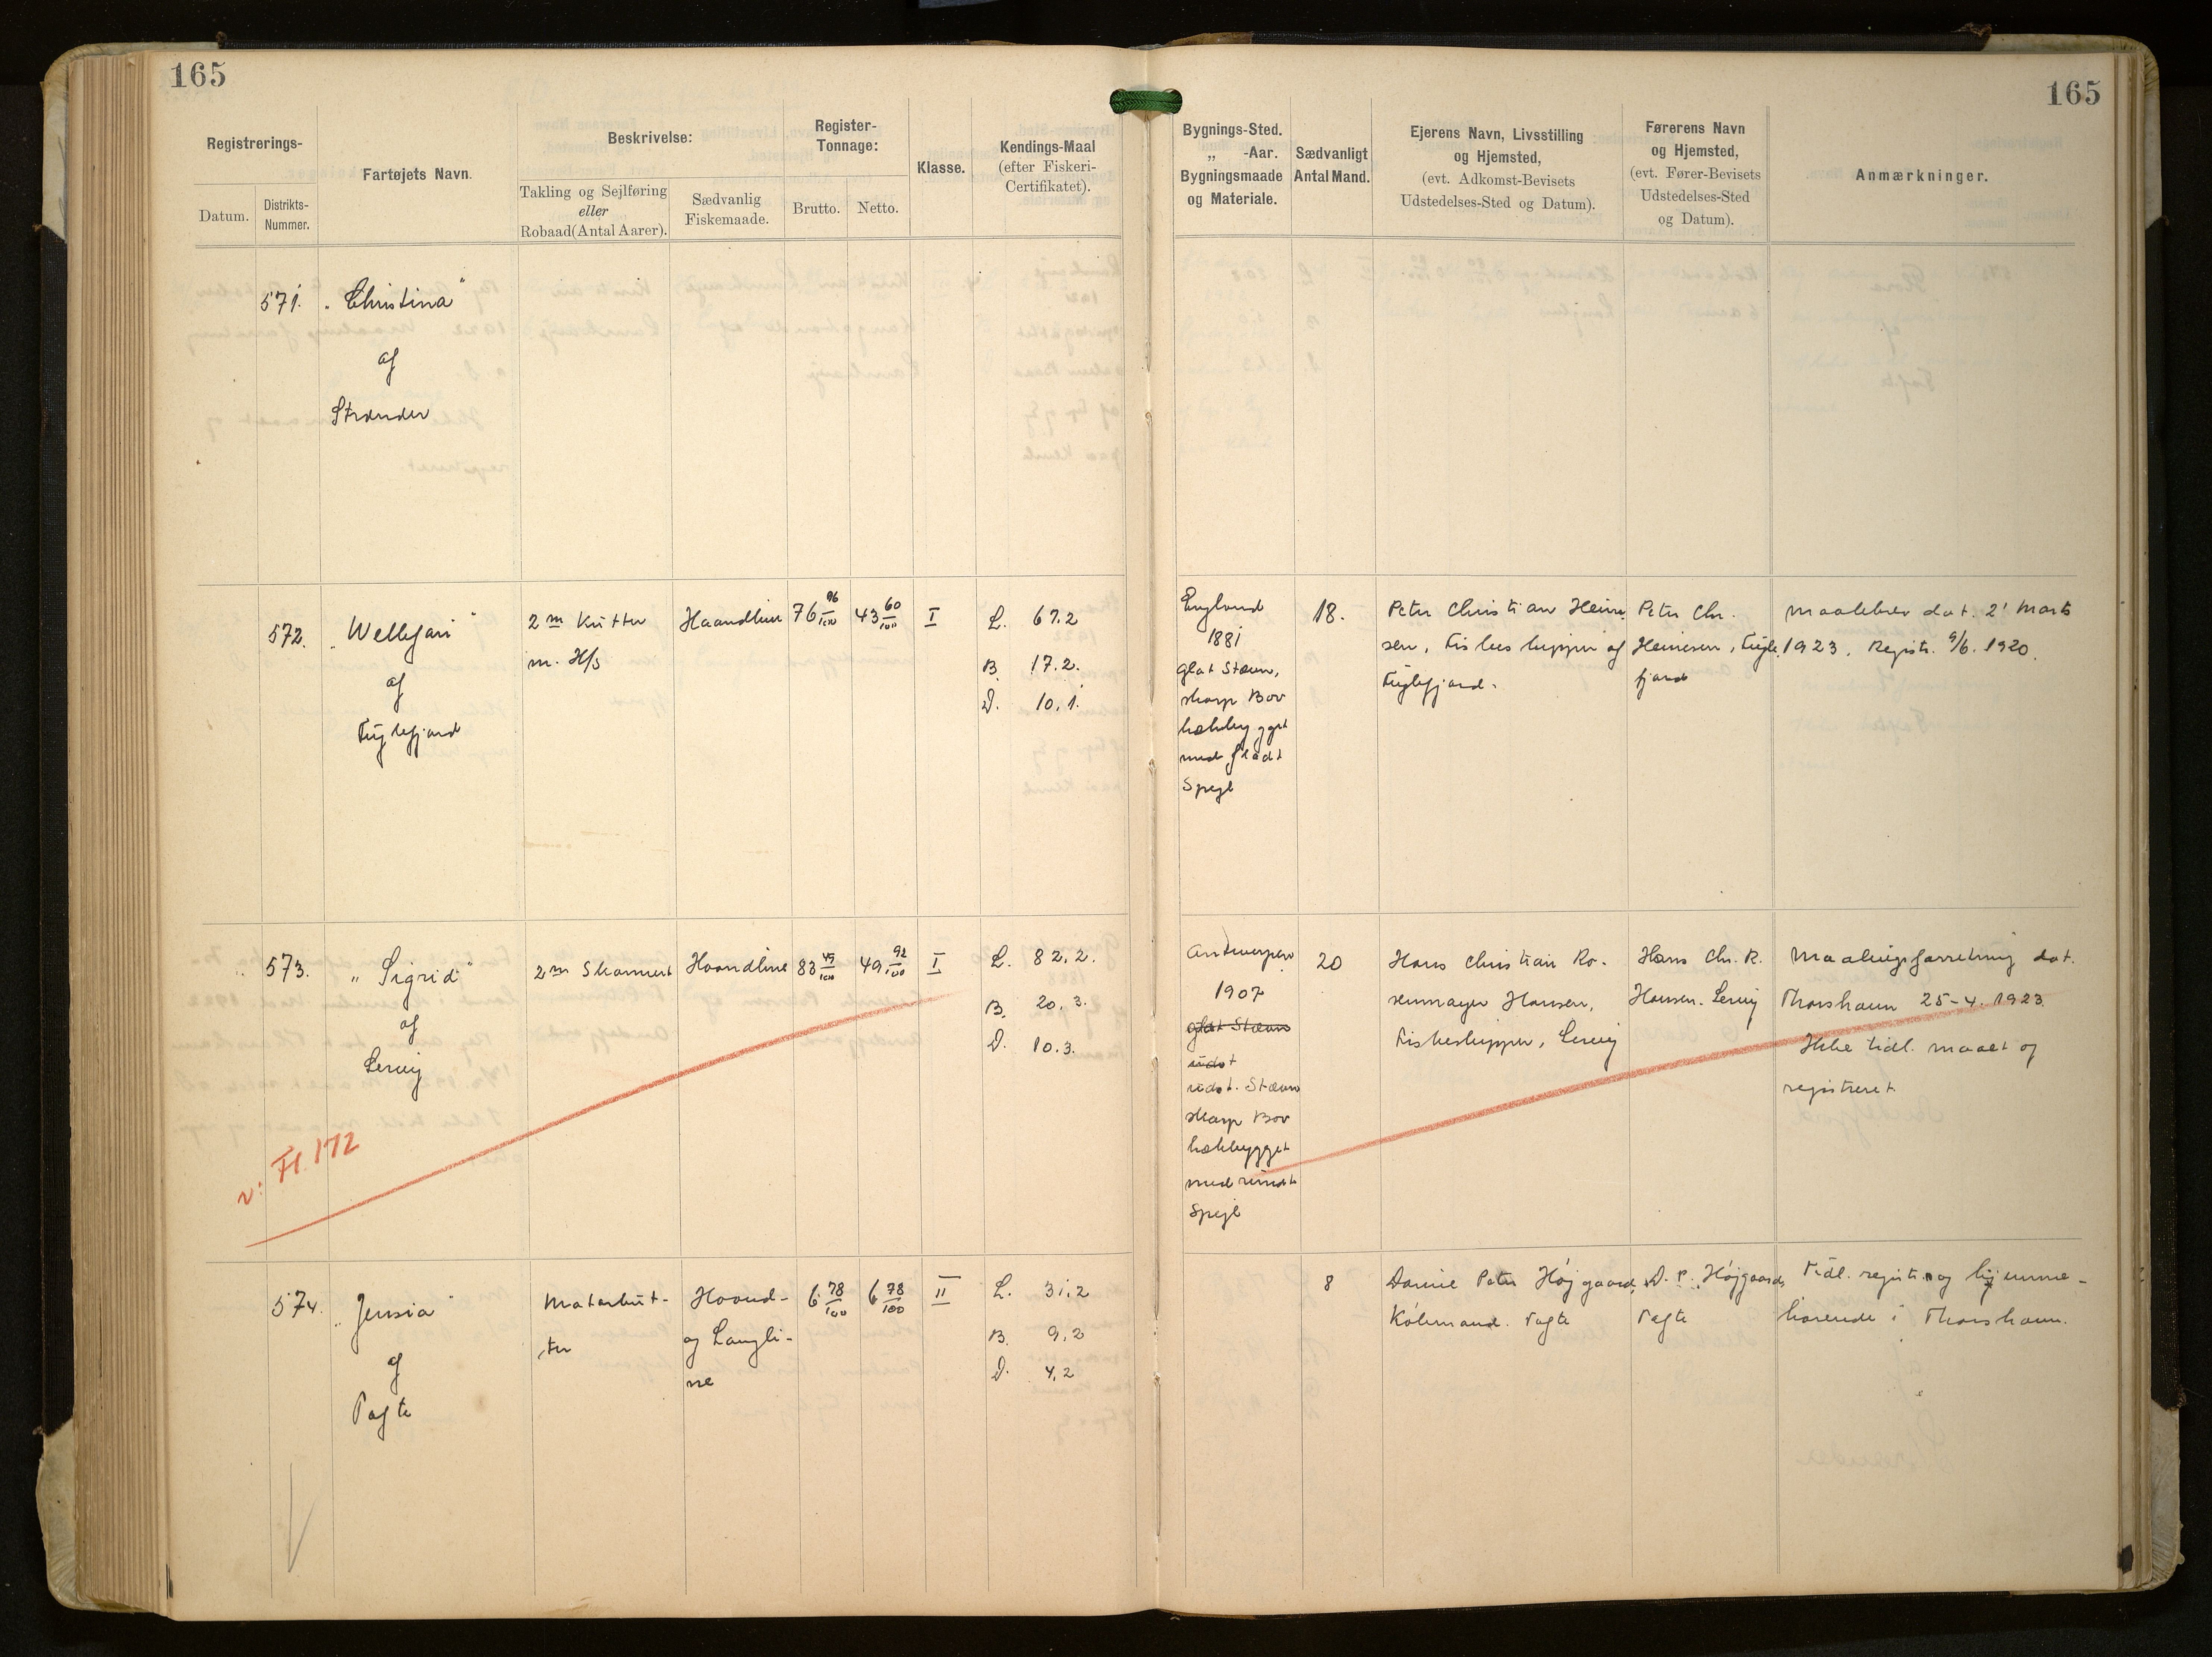 165
165
Registrerings-
Datum.
Distrikts-
Nummer.
Fartøjets Navn.
Beskrivelse:
Takling og Sejlføring
eller
Robaad (Antal Aarer).
Sædvanlig
Fiskemaade.
Register-
Tonnage:
Brutto.
Netto.
Klasse.
Kendings-Maal
(efter Fiskeri-
Certifikatet).
Bygnings-Sted.
„ -Aar.
Bygningsmaade
og Materiale.
Sædvanligt
Antal Mand.
Ejerens Navn, Livsstilling
og Hjemsted,
(evt. Adkomst-Bevisets
Udstedelses-Sted og Datum).
Førerens Navn
og Hjemsted,
(evt. Fører-Bevisets
Udstedelses-Sted
og Datum).
Anmærkninger.
571.
„Christina"
af
Strænder
572.
„Wellefari"
af
Fuglefjord
2 m Kutter
m. H/s
Haandline
76 96/100
43 60/100
I
L. 67.2
B. 17.2.
D. 10.1.
England
1881
glat Stævn,
skarp Bov
hækbygget
med fladt
Spejl
18.
Peter Christian Heine-
sen, Fiskeskipper af
Fuglefjord.
Peter Chr.
Heinesen, Fugle-
fjord
Maalebrev dat. 2' Marts
1923. Registr. 9/6. 1920.
573.
„Sigrid"
af
Lervig
2 m Skonnert
Haandline
83 49/100
49 92/100
I
L. 82.2.
B. 20.3.
D. 10.3.
Antwerpen
1907
glat Stævn
udst
udst. Stævn
skarp Bov
hækbygget
med rundt
Spejl
20
Hans Christian Ro-
senmayer Hansen,
Fiskeskipper, Lervig
Hans Chr. R.
Hansen. Lervig
Maalingsforretning dat.
Thorshavn 25-4. 1923.
Ikke tidl. maalt og
registreret
v: FL 172
574.
„Jensia"
af
Tofte
Motorkut-
ter
Haand-
og Langli-
ne
6 78/100
6 78/100
II
L. 31,2
B. 9,2
D. 4,2
8
Daniel Peter Højgaard,
Købmand. Tofte
D. P. Højgaard,
Tofte
Tidl. registr. og hjemme-
hørende i Thorshavn.